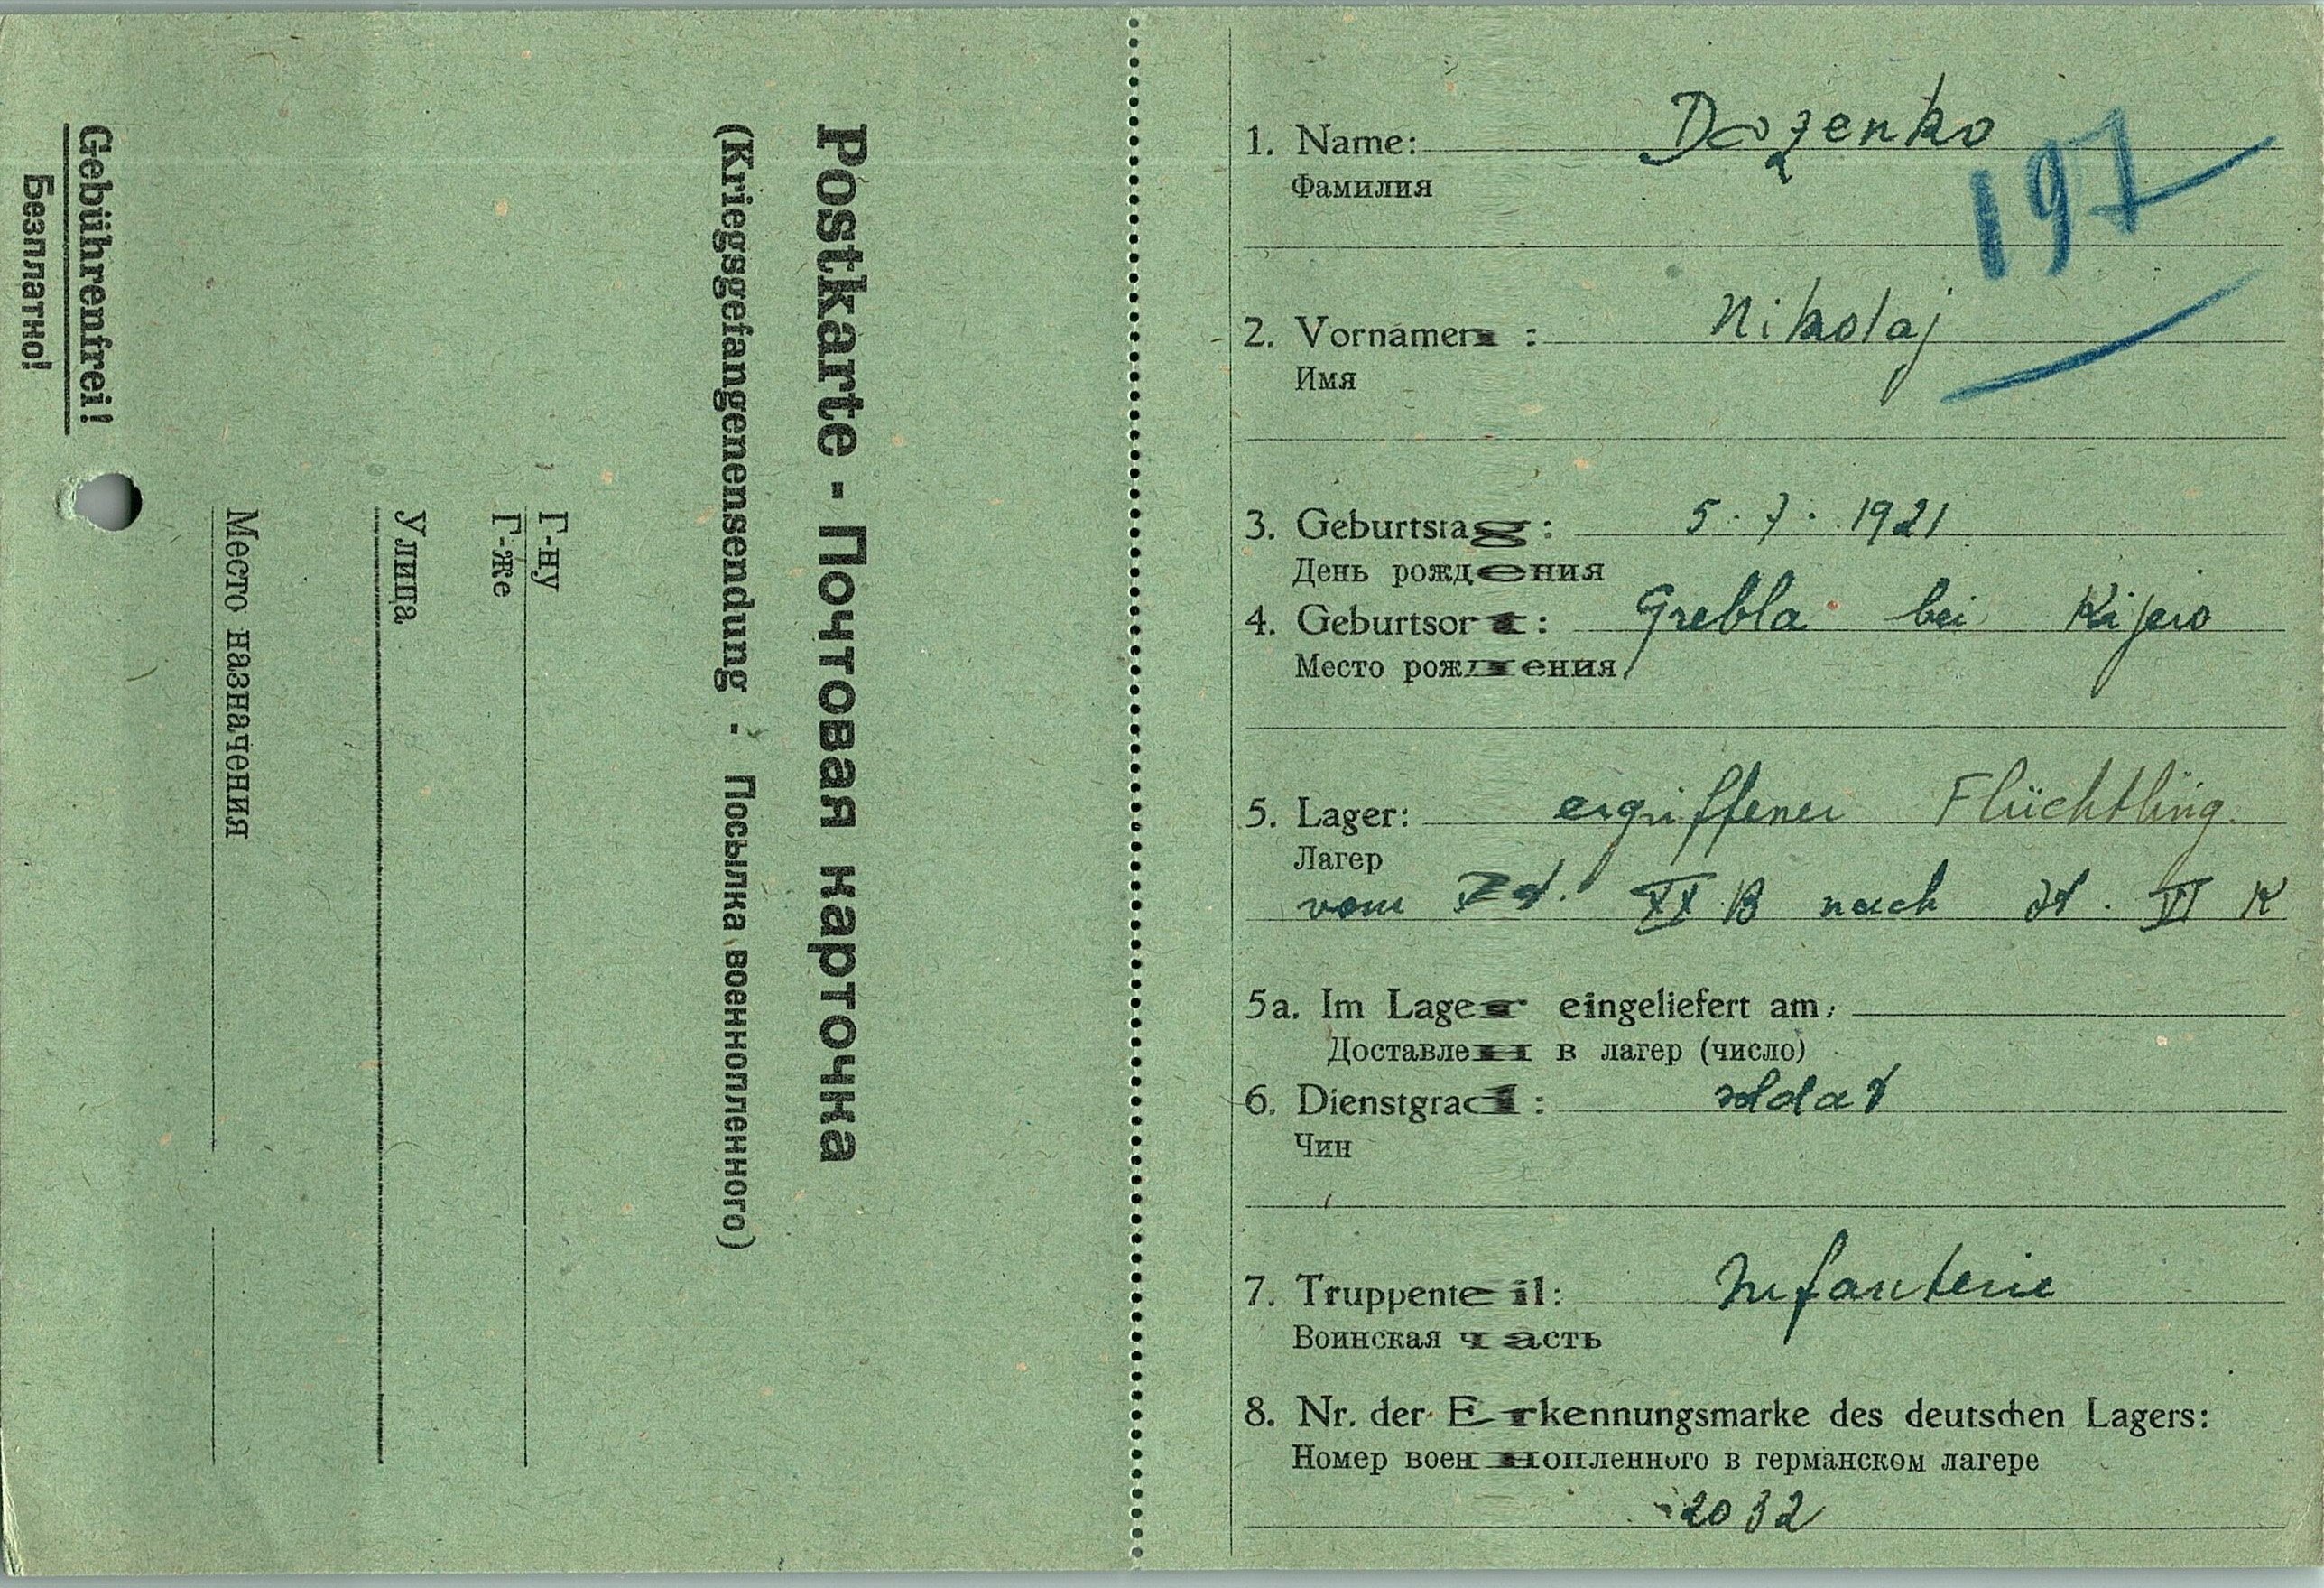 Gebührenfrei!
Безплатно!
Postkarte - Почтовая карточка
(Kriegsgefangenensendung : Посылка военнопленного)
Г-ну
Г-же
Улица
Место назначения
1. Name: Dozenko
Фамилия
197
2. Vornamen : Nikolaj
Имя
3. Geburtstag : 5. 7. 1921
День рождения
4. Geburtsort : Grebla bei Kijew
Место рождения
5. Lager: ergriffener Flüchtling.
Лагер
vom St. XX B nach St. VI K
5a. Im Lager eingeliefert am:
Доставлен в лагер (число)
6. Dienstgrad : soldat
Чин
7. Truppenteil: Infanterie
Воинская часть
8. Nr. der Erkennungsmarke des deutschen Lagers:
Номер военнопленного в германском лагере
2032